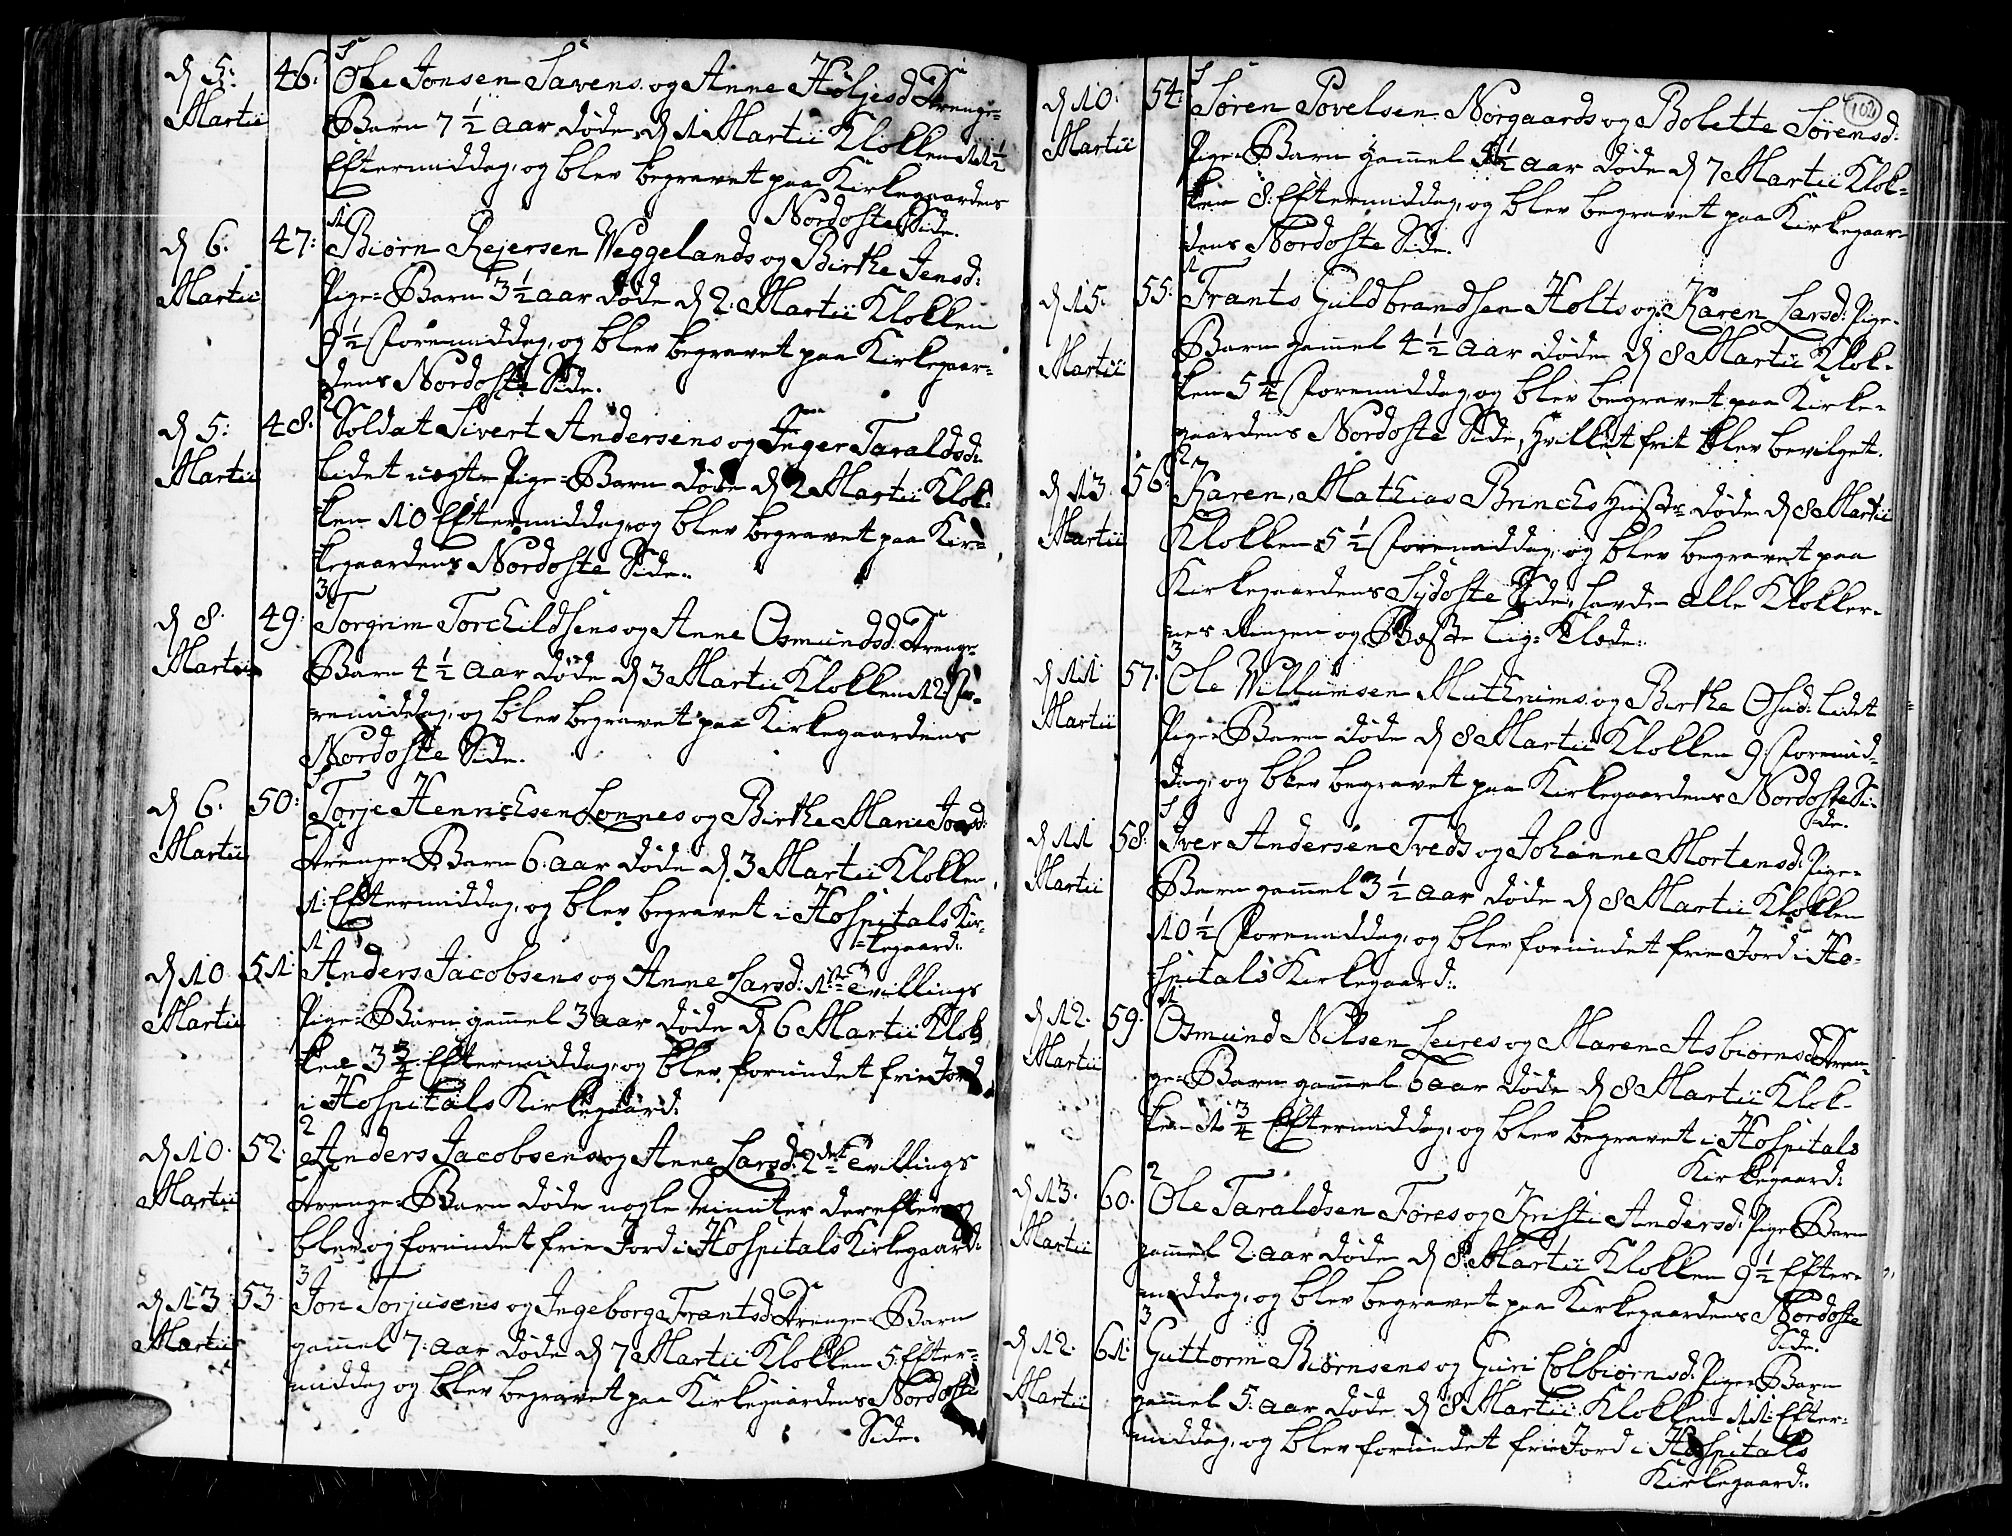 d 5: 46: Ole Jonsen Savens og Anne Höljesd Drenge-
Martii Barn 7 1/2 aar døde d 1 Martii Klokken 11 1/2
Eftermiddag, og blev begravet paa Kirkegaardens
Nordoste Side.
1
d 6: 47: Biørn Rejersen Weggelands og Birthe Jensd:
Martii Pige-Barn 3 1/2 aar døde d 2: Martii Klokken
9 1/2 Formiddag, og blev begravet paa Kirkegaar-
dens Nordoste Side.
2
d 5: 48: Soldat Sivert Andersens og Inger Taraldsd:
Martii lidet uegte Pige-Barn døde d 2 Martii Klok-
ken 10 Eftermiddag, og blev begravet paa Kir-
kegaardens Nordoste Side.
3
d 8: 49: Torgrim Torchildsens og Anne Osmundsd: Drenge-
Martii Barn 4 1/2 aar døde d 3 Martii Klokken 12 Fo-
remiddag, og blev begravet paa Kirkegaardens
Nordoste Side.
d 6: 50: Torje Henrichsen Lonnes og Birthe Marie
Martii Drenge-Barn 6: aar døde d. 3 Martii Klokken
1: Eftermiddag, og blev begravet i Hospitals Kir-
kegaard:
1
d 10 51: Anders Jacobsens og Anne Larsd: 1ste Tvillings
Martii Pige-Barn gamel 3 aar døde d 6 Martii Klok
ken 3 3/4 Eftermiddag, og blev forundet frie Jord
i Hospitals Kirkegaard:
2
d 10: 52: Anders Jacobsens og Anne Larsd: 2den Tvillings
Martii Drenge-Barn døde nogle Minuter derefter og
blev og forundet frie Jord i Hospitals Kirkegaard:
3
d 13 53 Jon Torjusens og Ingeborg Frantsd Drenge-Barn
Martii gamel 7: aar døde d 7 Martii Klokken 5: Efter-
middag og blev begravet paa Kirkegaardens Nordoste
Side.
102
d 10: 54: Søren Povelsen Nørgaards og Bolette Sørensd:
Martii Pige-Barn gamel aar døde d 7 Martii Klok-
ken 8: Eftermiddag, og blev begravet paa Kirkegaar-
dens Nordoste Side.
1
d 15: 55: Frants Guldbrandsen Holts og Karen Larsd: Pige-
Martii Barn gamel 4 1/2 aar døde d 8 Martii Klok-
ken 5 Formiddag, og blev begravet paa Kirke-
gaardens Nordoste Side, hvilket frit blev bevilget.
2
d 13 56: Karen, Mathias Brinchs Hustr: døde d 8 Martii
Martii Klokken 5 1/2 Formiddag, og blev begravet paa
Kirkegaardens Sydoste Side, havde alle Klokker-
nes Ringen og Beste Lig-Klæde.
3
d 11 57: Ole Willumsen og Birthe lidet
Martii Pige-Barn døde d 8 Martii Klokken 9: Formid-
dag, og blev begravet paa Kirkegaardens Nordoste Si-
de.
d 11 58: Iver Andersen Tveds og Johanne Mortensd: Pige-
Martii Barn gamel 3 1/2 aar døde d 8 Martii Klokken
10 1/2 Formiddag, og blev forundet frie Jord i Ho-
spitals Kirkegaard:
1
d 12: 59: Osmund Nilsen Leires og Maren Asbiørnsd Dren-
Martii ge-Barn gammel 6 aar døde d 8 Martii Klok-
ken 1 3/4 Eftermiddag, og blev begravet i Hospitals
Kirkegaard:
2
d 13. 60: Ole Taraldsen Fores og Kristi Andersd: Pige Barn
Martii gammel 2: aar døde d 8 Martii Klokken 9 1/2 Efter-
middag, og blev begravet paa Kirkegaardens Nordoste
Side.
3
d 12: 61: Guttorm Biørnsens og Guri Colbiørnsd: Pige-Barn
Martii gammel 5: aar døde d 8 Martii Klokken 11: Efter-
middag, og blev forundet frie Jord i Hospitals
Kirkegaard: